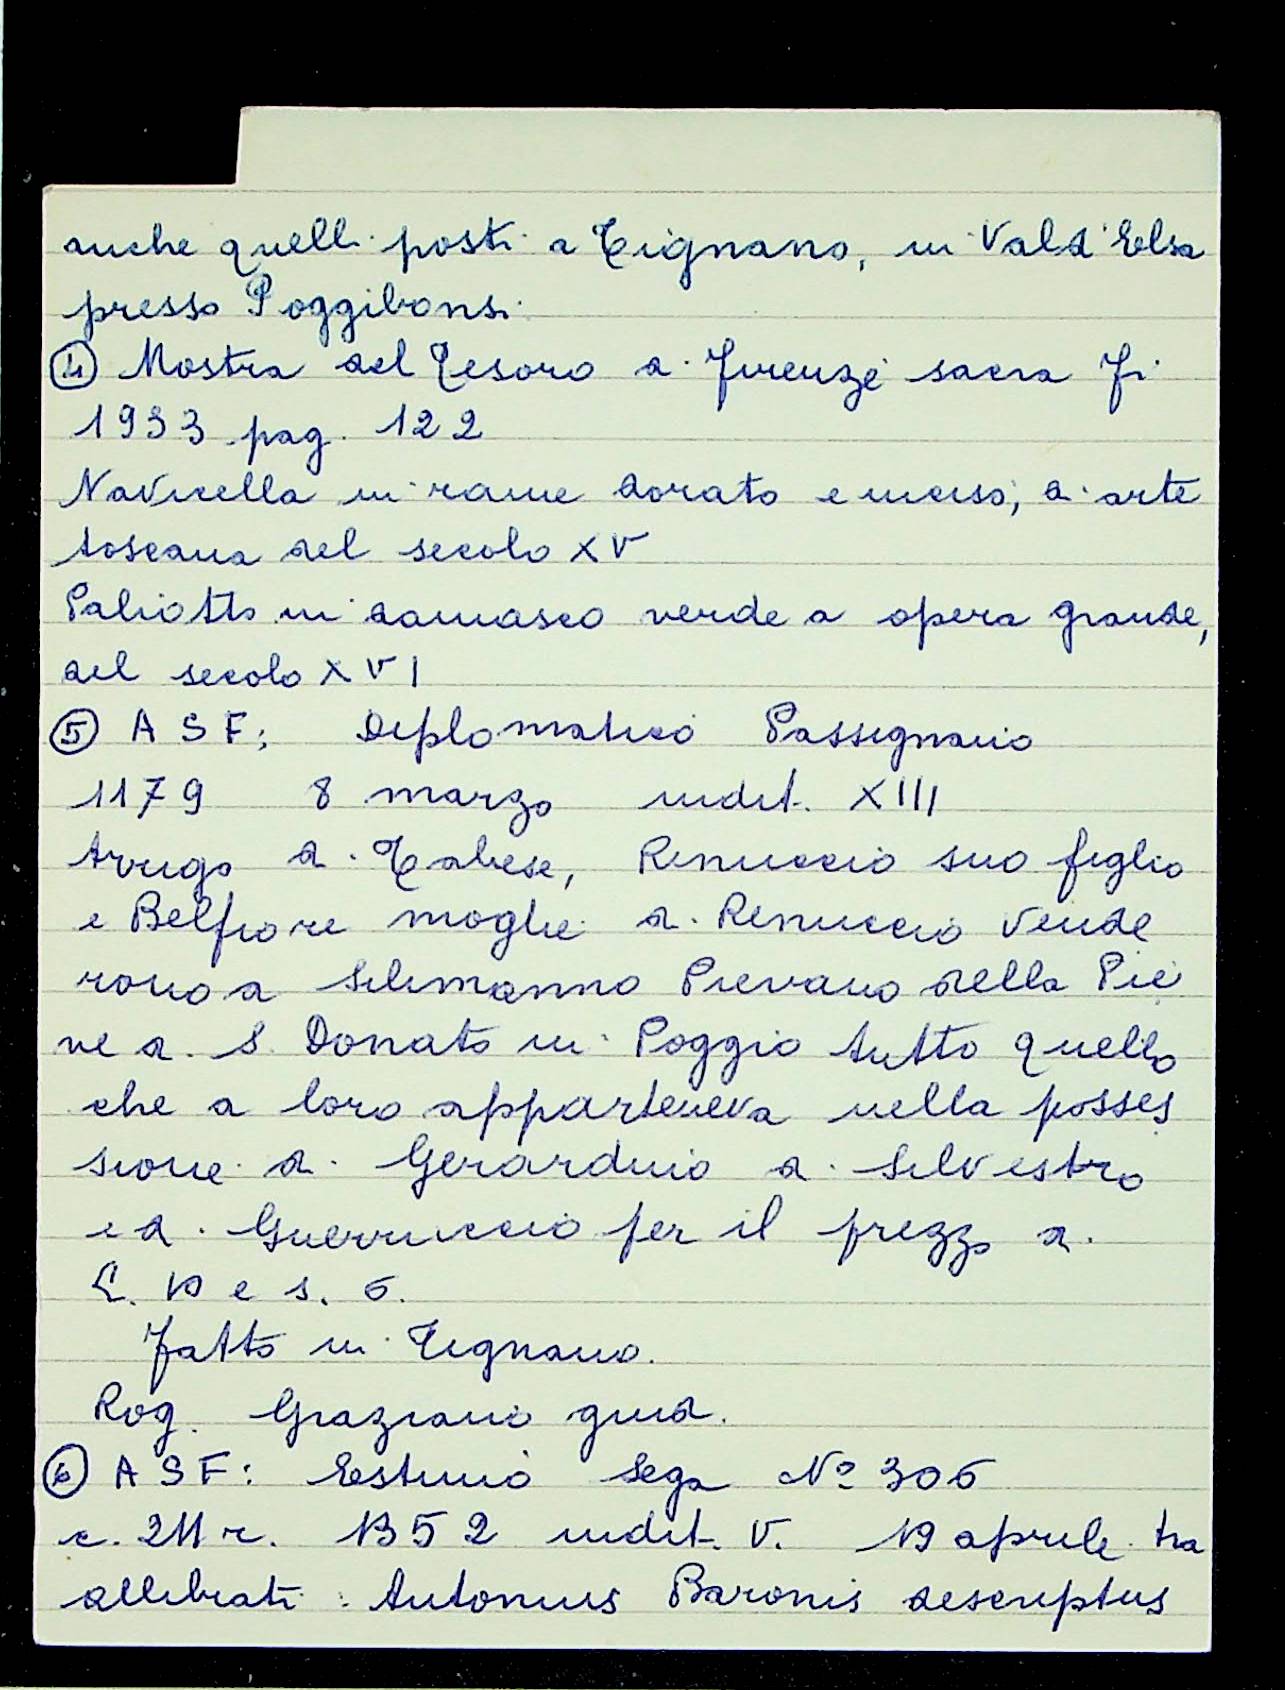 anche quelli posti a Tignano, in Val d'Elsa
presso Poggibonsi
④ Mostra del Tesoro di Firenze sacra Fi
1933 pag. 122
Navicella in rame dorato e inciso, di arte
toscana del secolo XV
Paliotto in damasco verde a opera grande,
del secolo XVI
⑤ A S F: Diplomatico Passignano
1179 8 marzo indit. XIII
Arrigo di Tabese, Renuccio suo figlio
e Belfiore moglie di Renuccio vende
rono a Silimanno Pievano della Pie
ve di S. Donato in Poggio tutto quello
che a loro apparteneva nella posses
sione di Gerardino di Silvestro
e di Guerruccio per il prezzo di
L. 10 e s. 6.
Fatto in Tignano.
Rog. Graziano giud.
⑥ A S F: Estimo Sega Nº 306
c. 211 r. 1352 indit. V. 19 aprile tra
allibrati: Antonius Baronis descriptus